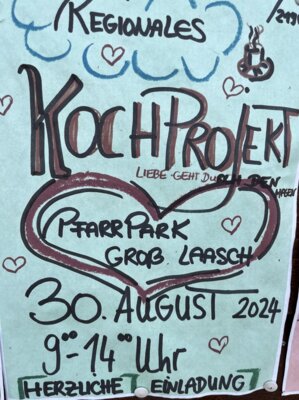 REGIONALES
KOCHPROJEKT
LIEBE GEHT DURCH DEN
MAGEN
PFARRPARK
GROß LAASCH
30. AUGUST 2024
9°°-14°° Uhr
HERZLICHE EINLADUNG